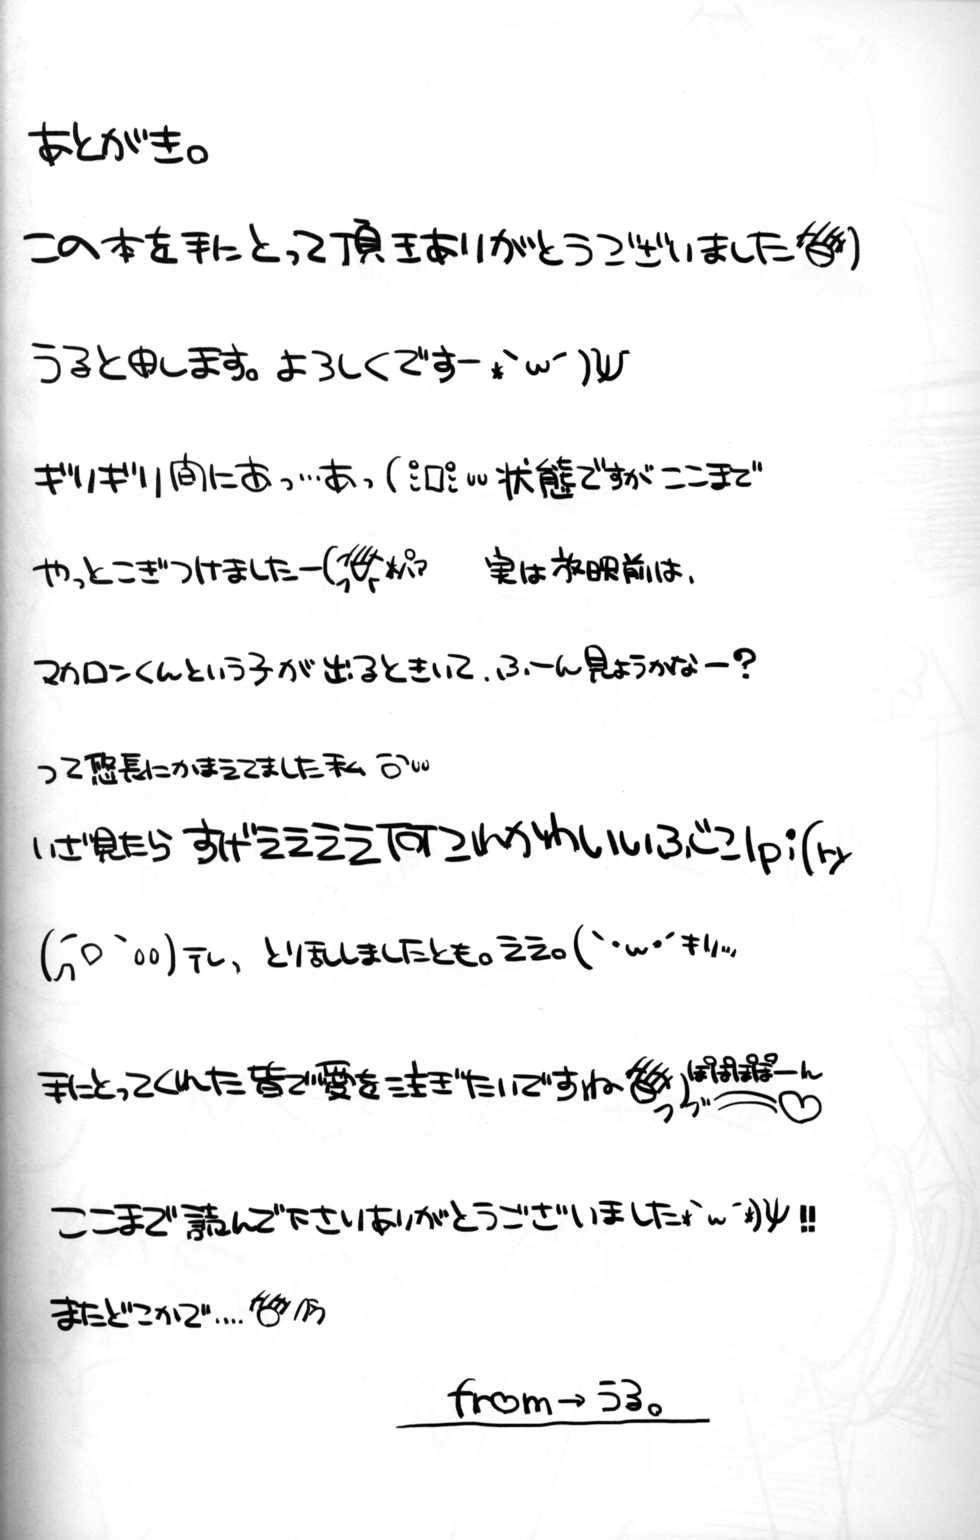 あとがき。
この本を手にとって頂きありがとうございました
うると申します。よろしくですー*`ω´)ψ
ギリギリ間にあっ…あっ( 状態ですがここまで
やっとこぎつけましたー( 実は放映前は、
マカロンくんという子が出るときいて、ふーん見ようかなー?
って悠長にかまえてました私
いざ見たら すげえええええ何これかわいいいふじこlpi(ry
テレ、とり乱しましたとも。ええ。(`･ω･´キリッ
手にとってくれた皆で愛を注ぎたいですね ぽぽぽぽーん
ここまで読んで下さりありがとうございました*`ω´*)ψ!!
またどこかで....
from→うる。